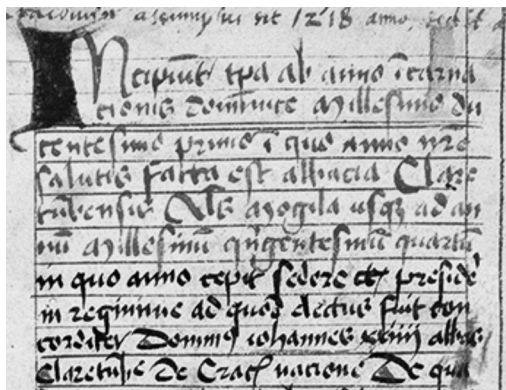 assumptus sit 1218 anno, sed et
Incipiunt tpa ab anno icarna
cionis dominice Millesimo du
centesimo primo i quo anno nre
salutis facta est abbacia Clare
tumbensis als Mogila usq ad an
nu Millesimu qngentesimu quartu
in quo anno cepit sedere et preside
in regimine ad quod electus fuit con
corditer Dominus iohannes xxiiii abbas
Claretube de Crac nacione De qua